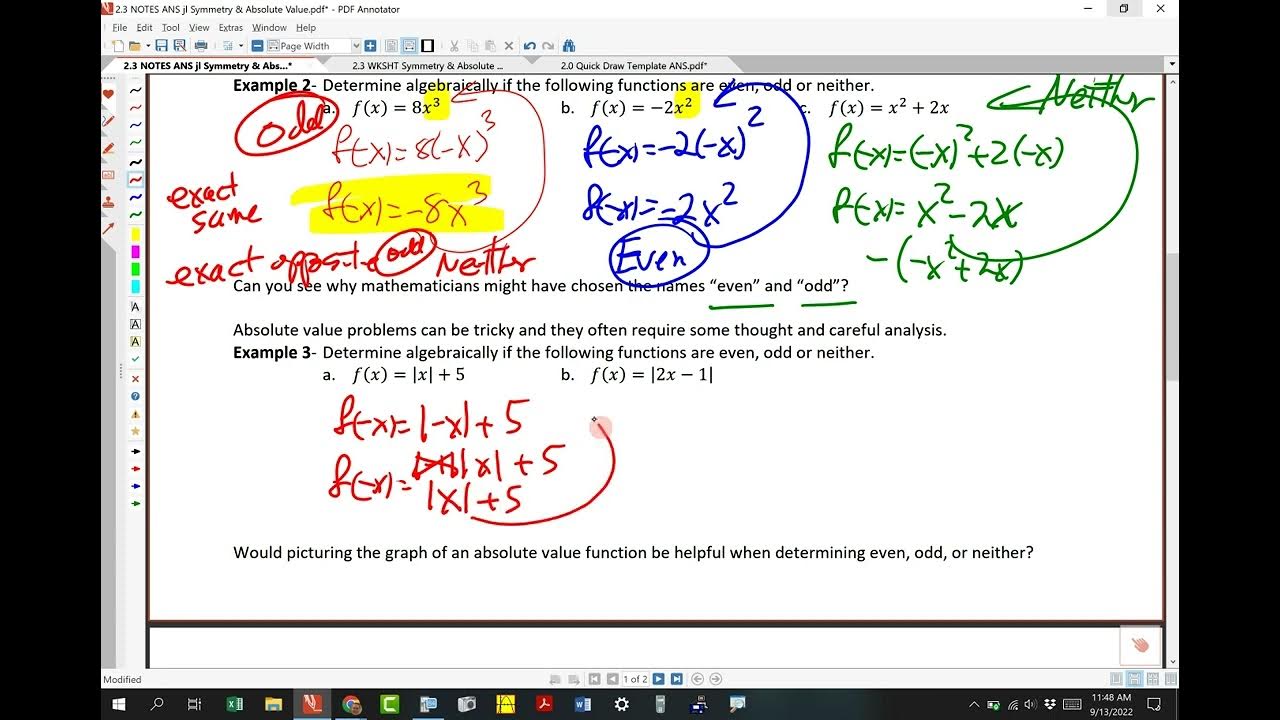 2.3 NOTES ANS jl Symmetry & Absolute Value.pdf* - PDF Annotator
File Edit Tool View Extras Window Help
Page Width
2.3 NOTES ANS jl Symmetry & Abs...* 2.3 WKSHT Symmetry & Absolute ... 2.0 Quick Draw Template ANS.pdf*
Example 2- Determine algebraically if the following functions are even, odd or neither.
a. f(x) = 8x³ b. f(x) = −2x² c. f(x) = x² + 2x
Odd
Neither
f(-x)=8(-x)³
f(-x)=-2(-x)²
f(-x)=(-x)²+2(-x)
exact same
f(-x)=-8x³
f(-x)=-2x²
f(-x)=x²-2x
exact opposite odd Neither
Even
-(-x²+2x)
Can you see why mathematicians might have chosen the names “even” and “odd”?
Absolute value problems can be tricky and they often require some thought and careful analysis.
Example 3- Determine algebraically if the following functions are even, odd or neither.
a. f(x) = |x| + 5 b. f(x) = |2x − 1|
f(-x)=|-x|+5
f(-x)= |x|+5
|x|+5
Would picturing the graph of an absolute value function be helpful when determining even, odd, or neither?
Modified
1 of 2
11:48 AM
9/13/2022